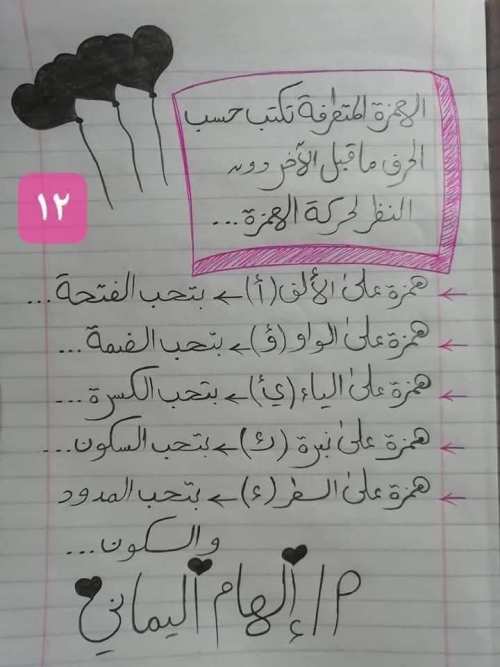 الهمزة المتطرفة تكتب حسب
الحرف ما قبل الآخر دون
النظر لحركة الهمزة...
١٢
← همزة على الألف (أ) ← بتحب الفتحة...
← همزة على الواو (ؤ) ← بتحب الضمة...
← همزة على الياء (ئ) ← بتحب الكسرة...
← همزة على نبرة (ئ) ← بتحب السكون...
← همزة على السطر (ء) ← بتحب المدود
والسكون...
م/إلهام اليماني